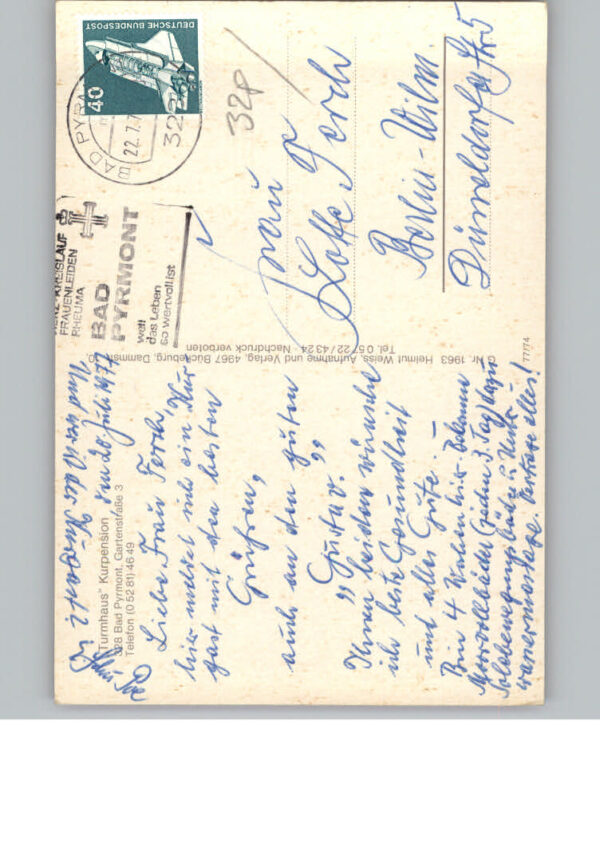 "Turmhaus" Kurpension
328 Bad Pyrmont, Gartenstraße 3
Telefon (0 52 81) 46 49
den 20. Juli 1977
Liebe Frau Ferch,
hier meldet sich ein Kur
gast mit den besten
Grüßen,
auch an den guten
"Gustav."
Ihnen beiden wünsche
ich beste Gesundheit
und alles Gute. –
Bin 4 Wochen hier. Bekomme
Moorvollbäder (jeden 3. Tag) dazu
Solebewegungsbäder u. Unter-
wassermassage. Vertrage alles!
G Nr. 1963 Helmut Weiss, Aufnahme und Verlag, 4967 Bückeburg, Dammstr.
Tel. 0 57 22 / 43 24 · Nachdruck verboten
77/74
HERZ-KREISLAUF
FRAUENLEIDEN
RHEUMA
BAD
PYRMONT
weil
das Leben
so wertvoll ist
BAD PYRM
22. 7. 7
328
DEUTSCHE BUNDESPOST
40
328
Frau
Lotte Ferch
Berlin-Wilm.
Düsseldorfer Str. 5